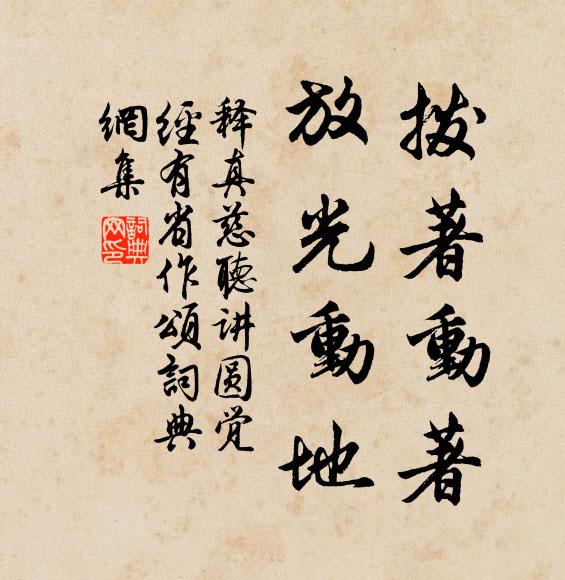 拨著動著
放光動地
释真慈聽讲圆觉
經有省作頌詞典
網集
詞典
网印